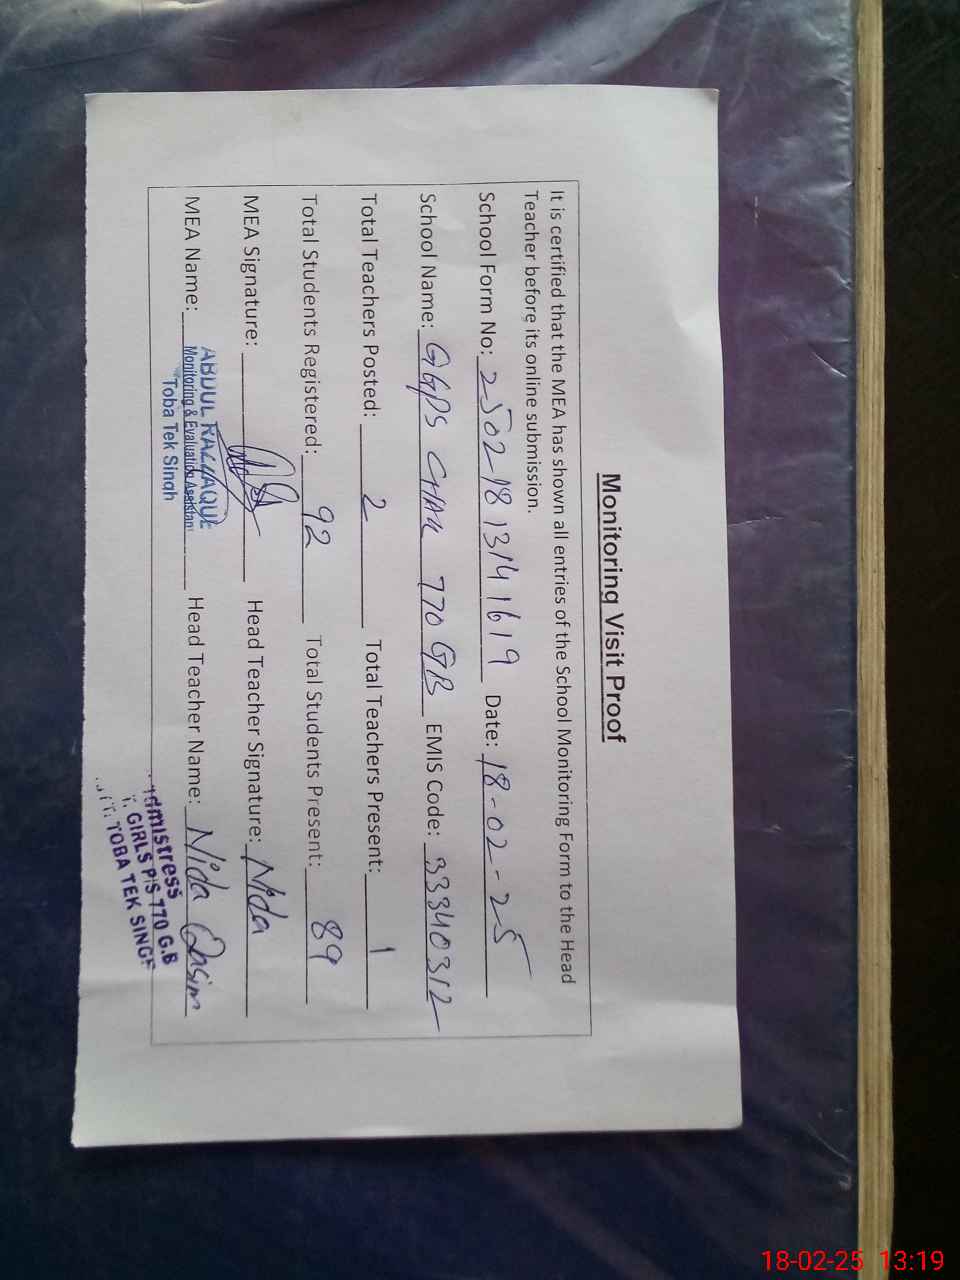 Monitoring Visit Proof
It is certified that the MEA has shown all entries of the School Monitoring Form to the Head
Teacher before its online submission.
School Form No: 2502-1813141619 Date: 18-02-25
School Name: GGPS CHAK 770 GB EMIS Code: 33340312
Total Teachers Posted: 2 Total Teachers Present: 1
Total Students Registered: 92 Total Students Present: 89
MEA Signature: Head Teacher Signature: Nida
MEA Name: ABDUL Head Teacher Name: Nida Qasim
Monitoring & Evaluation Assistant
Toba Tek Singh
GIRLS P/S 770 G.B
TOBA TEK SINGH
18-02-25 13:19